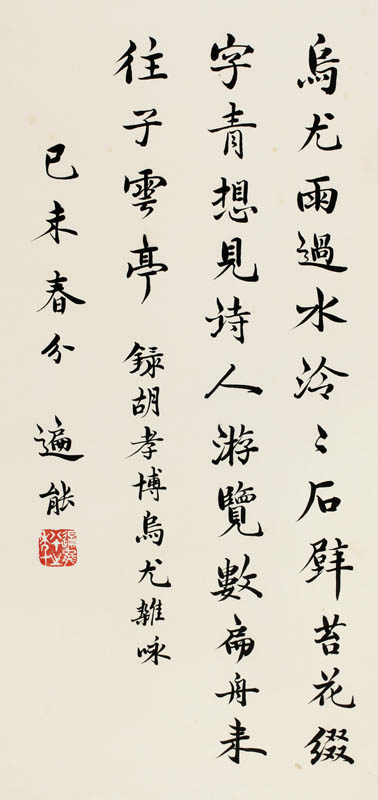 烏尤雨過水泠〻石壁苔花綴
字青想見诗人游覽數扁舟来
往子雲亭 録胡孝博烏尤雜咏
己未春分 遍能